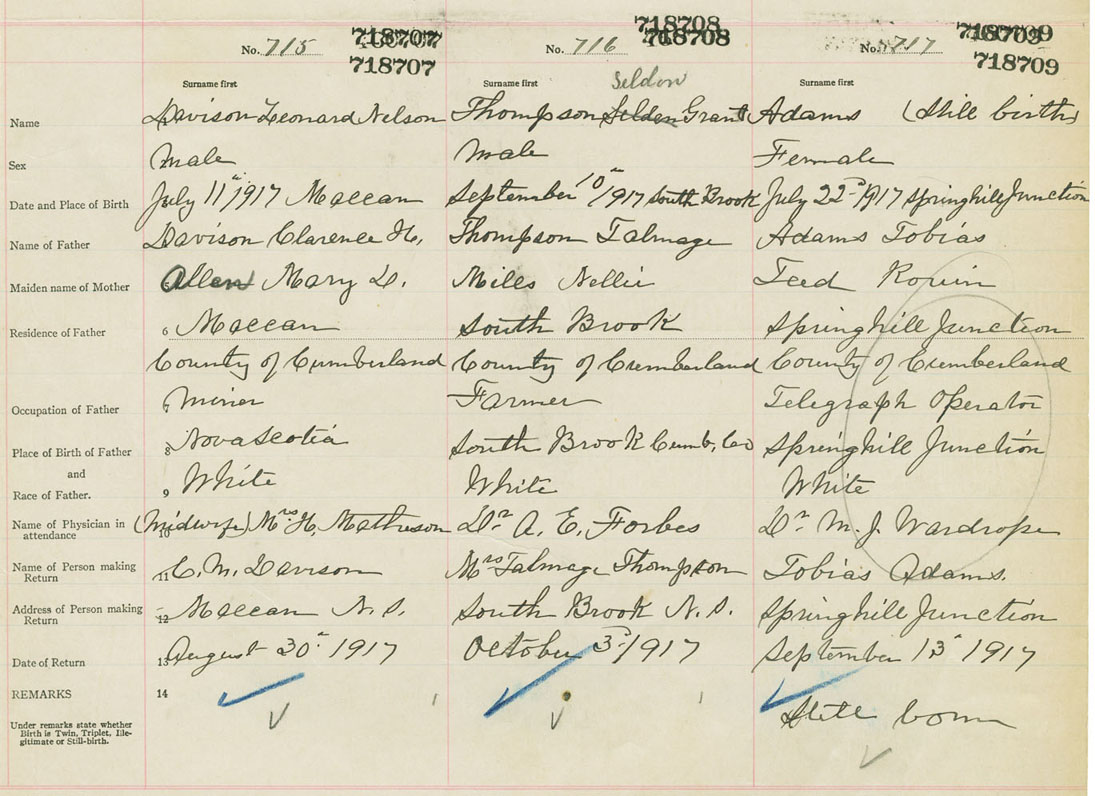 No. 715 718707 718707 No. 716 718708 718708 No. 717 718709 718709
Surname first Surname first Seldon Surname first
Name Davison Leonard Nelson Thompson Selden Grant Adams (Still birth)
Sex Male Male Female
Date and Place of Birth July 11th 1917 Maccan September 10th/1917 South Brook July 22nd 1917 Springhill Junction
Name of Father Davison Clarence H. Thompson Talmage Adams Tobias
Maiden name of Mother 5 Allen Mary D. Miles Nellie Teed
Residence of Father 6 Maccan South Brook Springhill Junction
County of Cumberland County of Cumberland County of Cumberland
Occupation of Father 7 Miner Farmer Telegraph Operator
Place of Birth of Father 8 Nova Scotia South Brook Cumb. Co Springhill Junction
and
Race of Father. 9 White White White
Name of Physician in attendance 10 (Midwife) Mrs H. Matheson Dr A. E. Forbes Dr M. J. Wardrope
Name of Person making Return 11 C. M. Davison Mrs Talmage Thompson Tobias Adams.
Address of Person making Return 12 Maccan N. S. South Brook N. S. Springhill Junction
Date of Return 13 August 30th 1917 October 3rd/1917 September 13th 1917
REMARKS 14
Under remarks state whether Birth is Twin, Triplet, Illegitimate or Still-birth. Still born